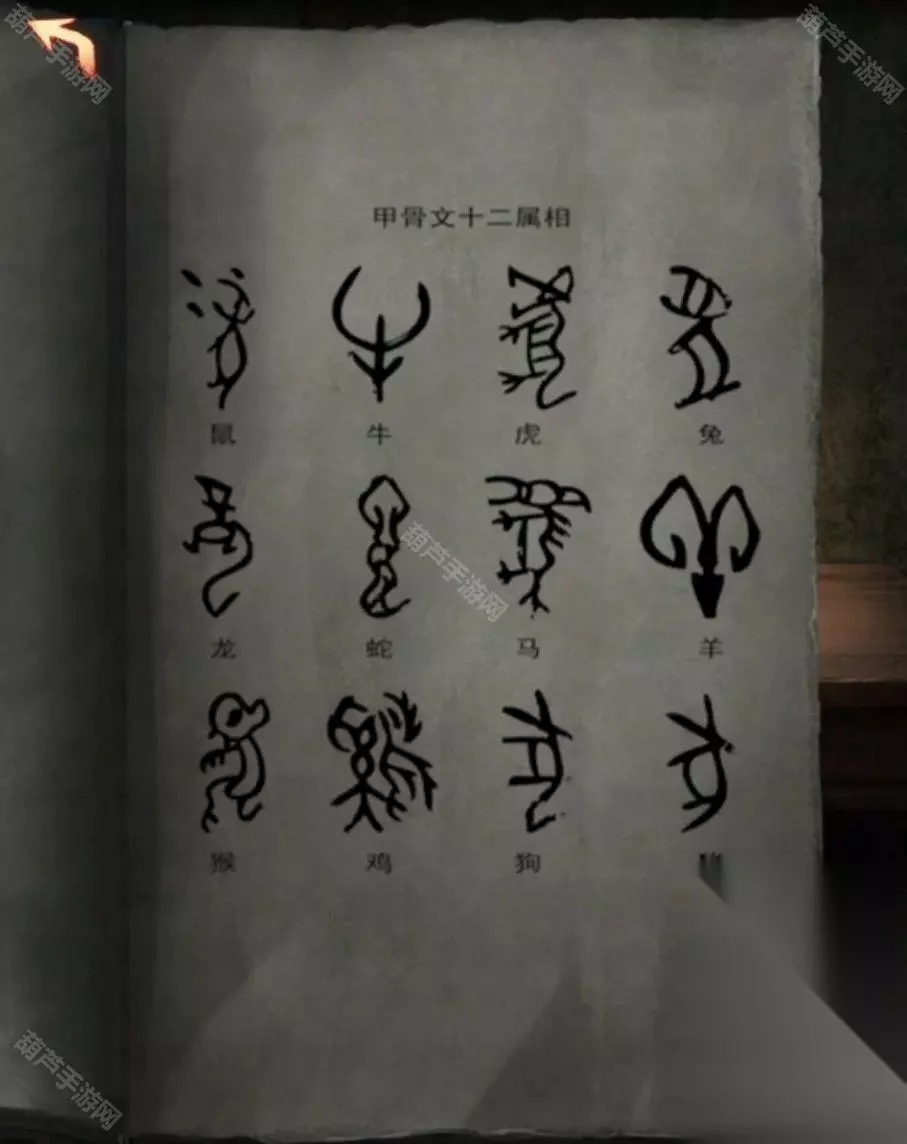 葫芦手游网
葫芦手游网
甲骨文十二属相
鼠 牛 虎 兔
葫芦手游网
龙 蛇 马 羊
猴 鸡 狗 猪
葫芦手游网